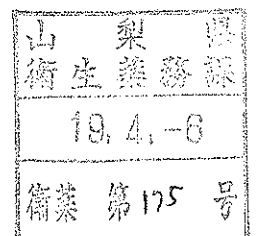 山梨県
衛生薬務課
19.4.-6
衛薬 第175号